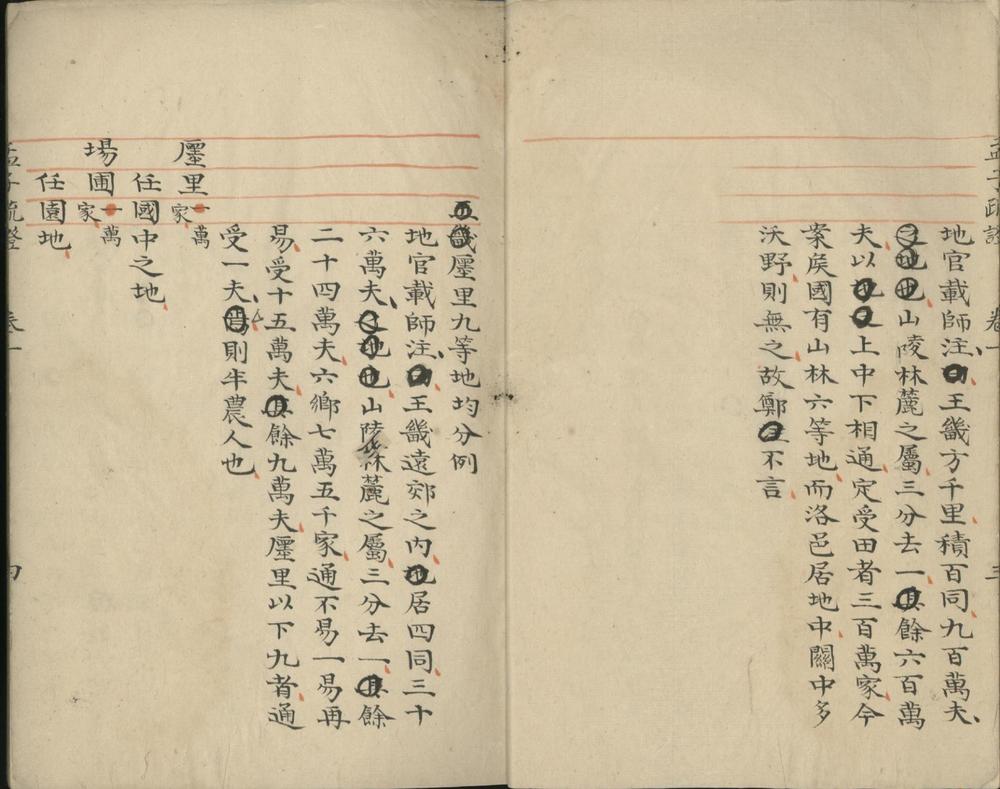 孟子疏證 卷一 三
地官載師注、王畿方千里積百同九百萬夫、
山陵林麓之屬三分去一餘六百萬
夫以上中下相通定受田者三百萬家今
案矦國有山林六等地而洛邑居地中關中多
沃野則無之故鄭不言
廛里九等地均分例
地官載師注、王畿遠郊之內居四同三十
六萬夫、山陵林麓之屬三分去一餘
二十四萬夫六鄉七萬五千家通不易一易再
易受十五萬夫餘九萬夫廛里以下九者通
受一夫、則半農人也
廛里一萬家
任國中之地
場圃一萬家
任園地
孟子疏證 卷一 四